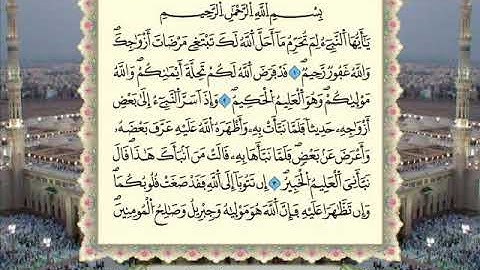 بِسْمِ اللَّهِ الرَّحْمَٰنِ الرَّحِيمِ
يَٰأَيُّهَا النَّبِيءُ لِمَ تُحَرِّمُ مَا أَحَلَّ اللَّهُ لَكَ تَبْتَغِي مَرْضَاتَ أَزْوَٰجِكَ
وَاللَّهُ غَفُورٌ رَّحِيمٌ ١ قَدْ فَرَضَ اللَّهُ لَكُمْ تَحِلَّةَ أَيْمَٰنِكُمْ وَاللَّهُ
مَوْلَىٰكُمْ وَهُوَ الْعَلِيمُ الْحَكِيمُ ٢ وَإِذَ اَسَرَّ النَّبِيءُ إِلَىٰ بَعْضِ
أَزْوَٰجِهِ حَدِيثًا فَلَمَّا نَبَّأَتْ بِهِ وَأَظْهَرَهُ اللَّهُ عَلَيْهِ عَرَّفَ بَعْضَهُ
وَأَعْرَضَ عَنْ بَعْضٍ فَلَمَّا نَبَّأَهَا بِهِ قَالَتْ مَنَ اَنْبَأَكَ هَٰذَا قَالَ
نَبَّأَنِيَ الْعَلِيمُ الْخَبِيرُ ٣ إِن تَتُوبَا إِلَى اللَّهِ فَقَدْ صَغَتْ قُلُوبُكُمَا
وَإِن تَظَّٰهَرَا عَلَيْهِ فَإِنَّ اللَّهَ هُوَ مَوْلَىٰهُ وَجِبْرِيلُ وَصَٰلِحُ الْمُومِنِينَ